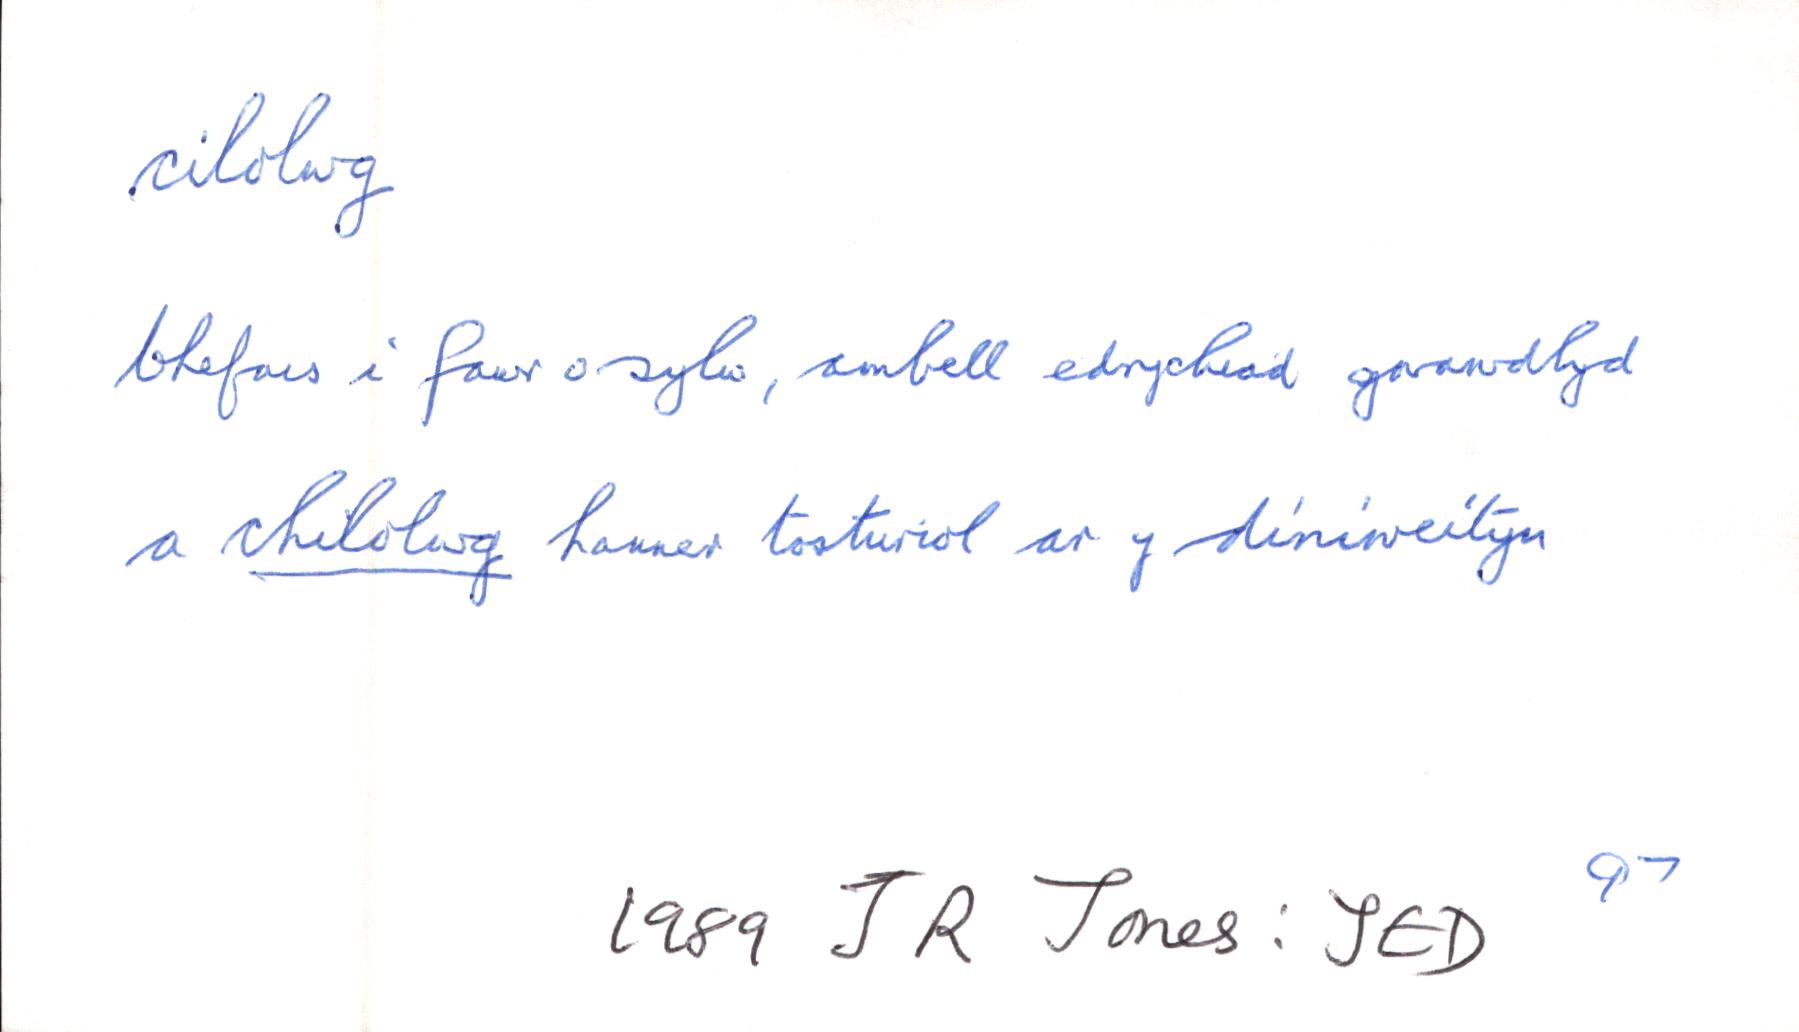 cilolwg
Chefais i fawr o sylw, ambell edrychiad gwawdlyd
a chilolwg hanner tosturiol ar y diniweityn
1989 J R Jones: YED 97